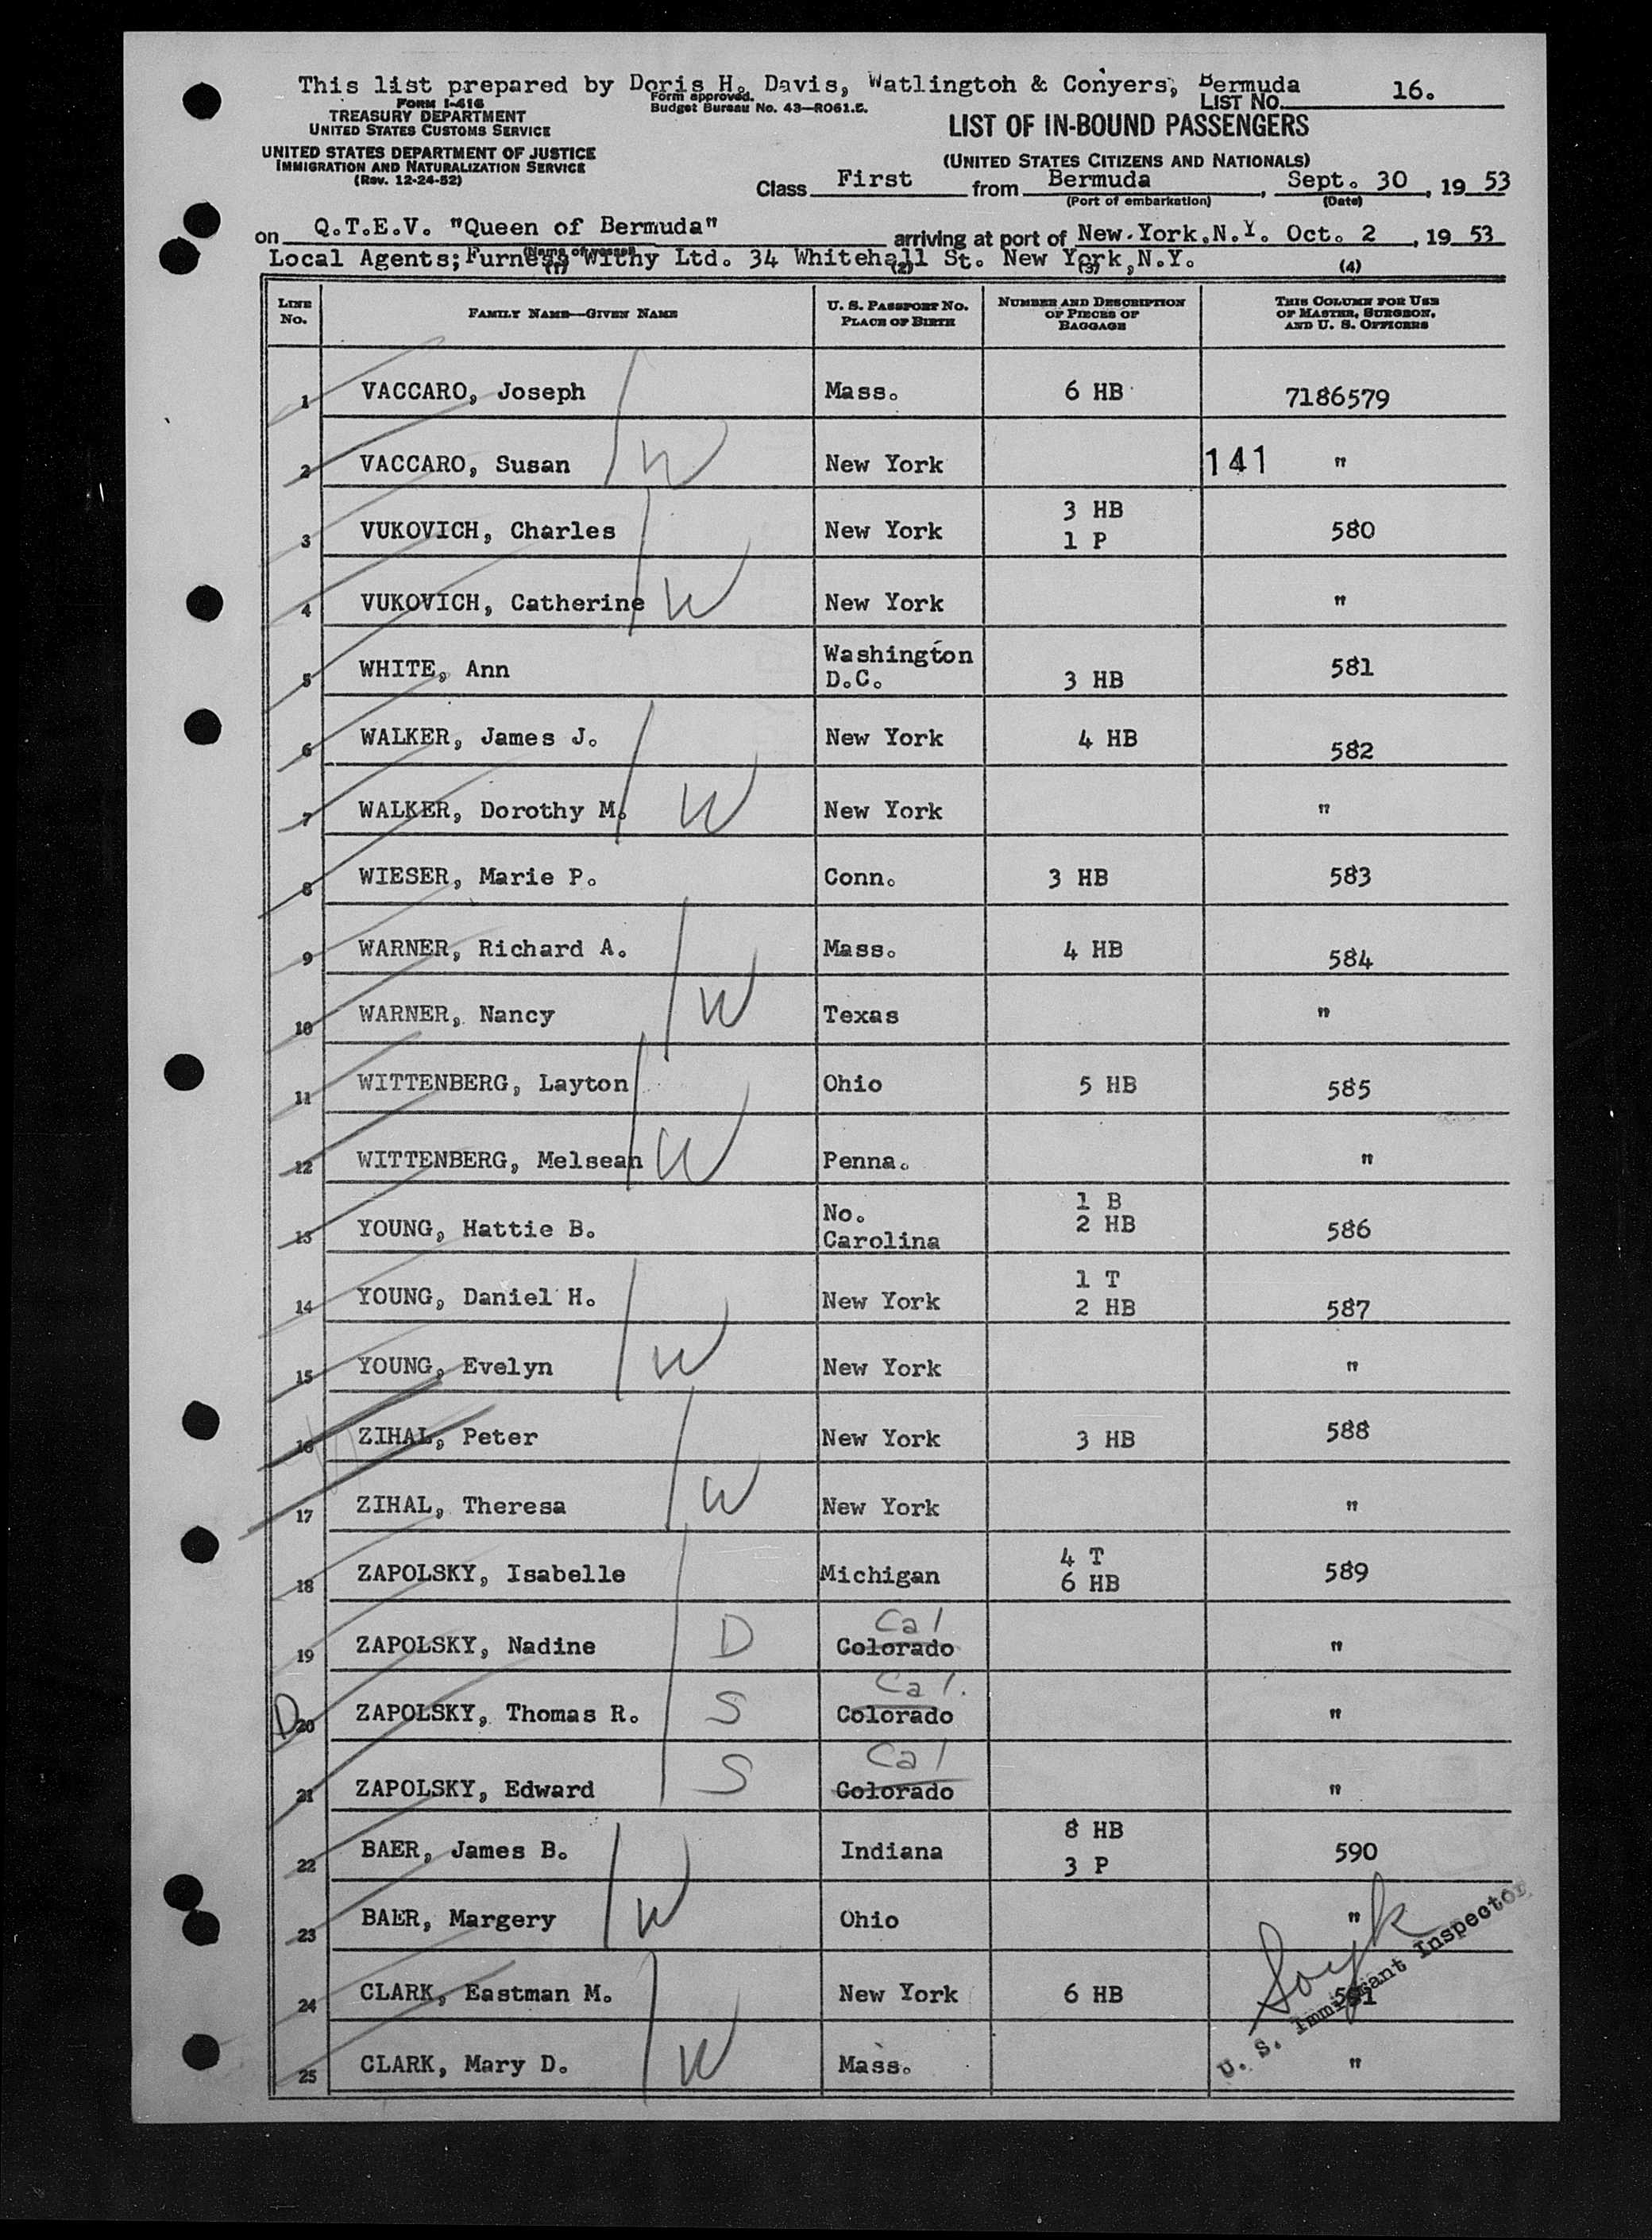 This list prepared by Doris H. Davis, Watlington & Conyers, Bermuda
FORM I-416
TREASURY DEPARTMENT
UNITED STATES CUSTOMS SERVICE
UNITED STATES DEPARTMENT OF JUSTICE
IMMIGRATION AND NATURALIZATION SERVICE
(Rev. 12-24-52)
Form approved.
Budget Bureau No. 43-R061.5.
LIST NO. 16.
LIST OF IN-BOUND PASSENGERS
(UNITED STATES CITIZENS AND NATIONALS)
Class First from Bermuda, Sept. 30, 19 53
(Port of embarkation) (Date)
on Q.T.E.V. "Queen of Bermuda" arriving at port of New York, N.Y. Oct. 2, 19 53
(Name of vessel)
Local Agents; Furness Withy Ltd. 34 Whitehall St. New York, N.Y.
(1) (2) (3) (4)
LINE NO. FAMILY NAME—GIVEN NAME U. S. PASSPORT NO. PLACE OF BIRTH NUMBER AND DESCRIPTION OF PIECES OF BAGGAGE THIS COLUMN FOR USE OF MASTER, SURGEON, AND U. S. OFFICERS
1 VACCARO, Joseph Mass. 6 HB 7186579
2 VACCARO, Susan W New York 141 "
3 VUKOVICH, Charles New York 3 HB 1 P 580
4 VUKOVICH, Catherine W New York "
5 WHITE, Ann Washington D.C. 3 HB 581
6 WALKER, James J. New York 4 HB 582
7 WALKER, Dorothy M. W New York "
8 WIESER, Marie P. Conn. 3 HB 583
9 WARNER, Richard A. Mass. 4 HB 584
10 WARNER, Nancy W Texas "
11 WITTENBERG, Layton Ohio 5 HB 585
12 WITTENBERG, Melsean W Penna. "
13 YOUNG, Hattie B. No. Carolina 1 B 2 HB 586
14 YOUNG, Daniel H. New York 1 T 2 HB 587
15 YOUNG, Evelyn W New York "
16 ZIHAL, Peter New York 3 HB 588
17 ZIHAL, Theresa W New York "
18 ZAPOLSKY, Isabelle Michigan 4 T 6 HB 589
19 ZAPOLSKY, Nadine D Cal Colorado "
D 20 ZAPOLSKY, Thomas R. S Cal. Colorado "
21 ZAPOLSKY, Edward S Cal Colorado "
22 BAER, James B. Indiana 8 HB 3 P 590
23 BAER, Margery W Ohio "
24 CLARK, Eastman M. New York 6 HB 591
25 CLARK, Mary D. W Mass. "
U. S. Immigrant Inspector